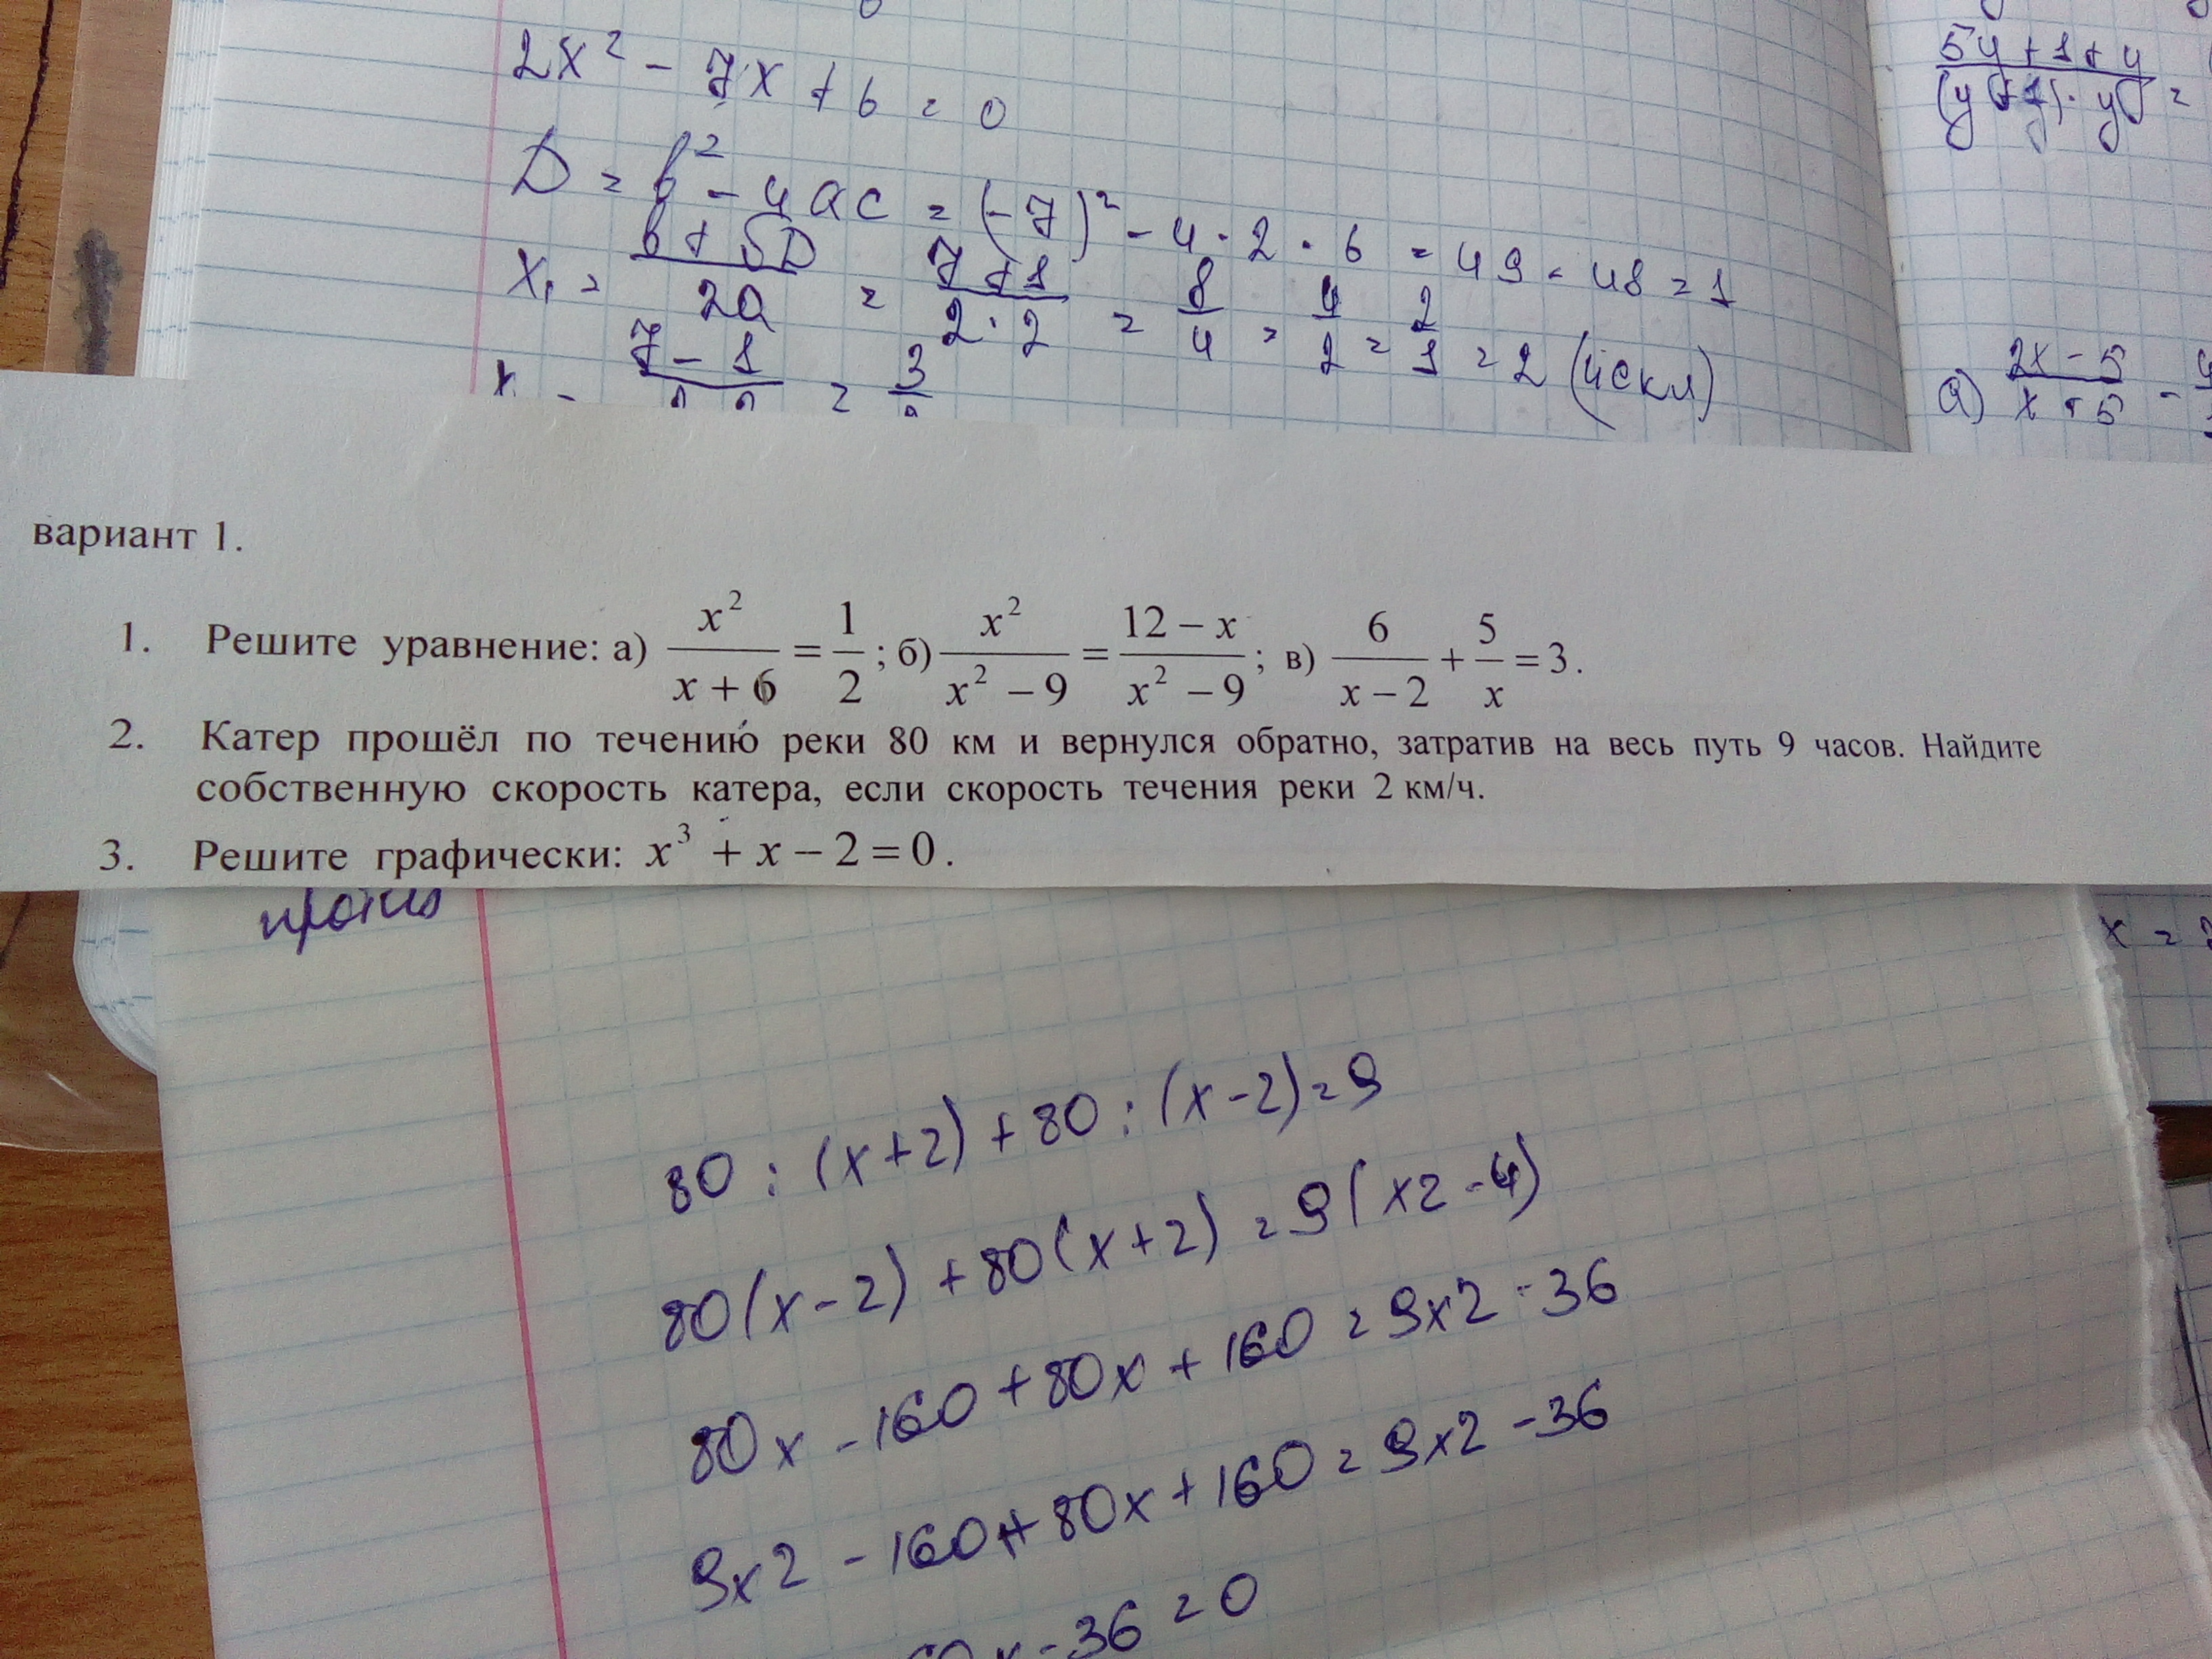 2x² - 7x + 6 = 0
D = b² - 4ac = (-7)² - 4 · 2 · 6 = 49 - 48 = 1
x₁ = b + √D / 2a = 7 + 1 / 2 · 2 = 8/4 = 4/2 = 2/1 = 2 (искл)
7 - 1 = 3
5y + 1 + y
а) 2x - 5 / x + 5 -
вариант 1.
1. Решите уравнение: а) x²/(x + 6) = 1/2 ; б) x²/(x² − 9) = (12 − x)/(x² − 9) ; в) 6/(x − 2) + 5/x = 3 .
2. Катер прошёл по течению реки 80 км и вернулся обратно, затратив на весь путь 9 часов. Найдите
собственную скорость катера, если скорость течения реки 2 км/ч.
3. Решите графически: x³ + x − 2 = 0 .
x =
80 : (x+2) + 80 : (x-2) = 9
80(x-2) + 80(x+2) = 9(x2-4)
80x - 160 + 80x + 160 = 9x2 - 36
9x2 - 160 + 80x + 160 = 9x2 - 36
x - 36 = 0